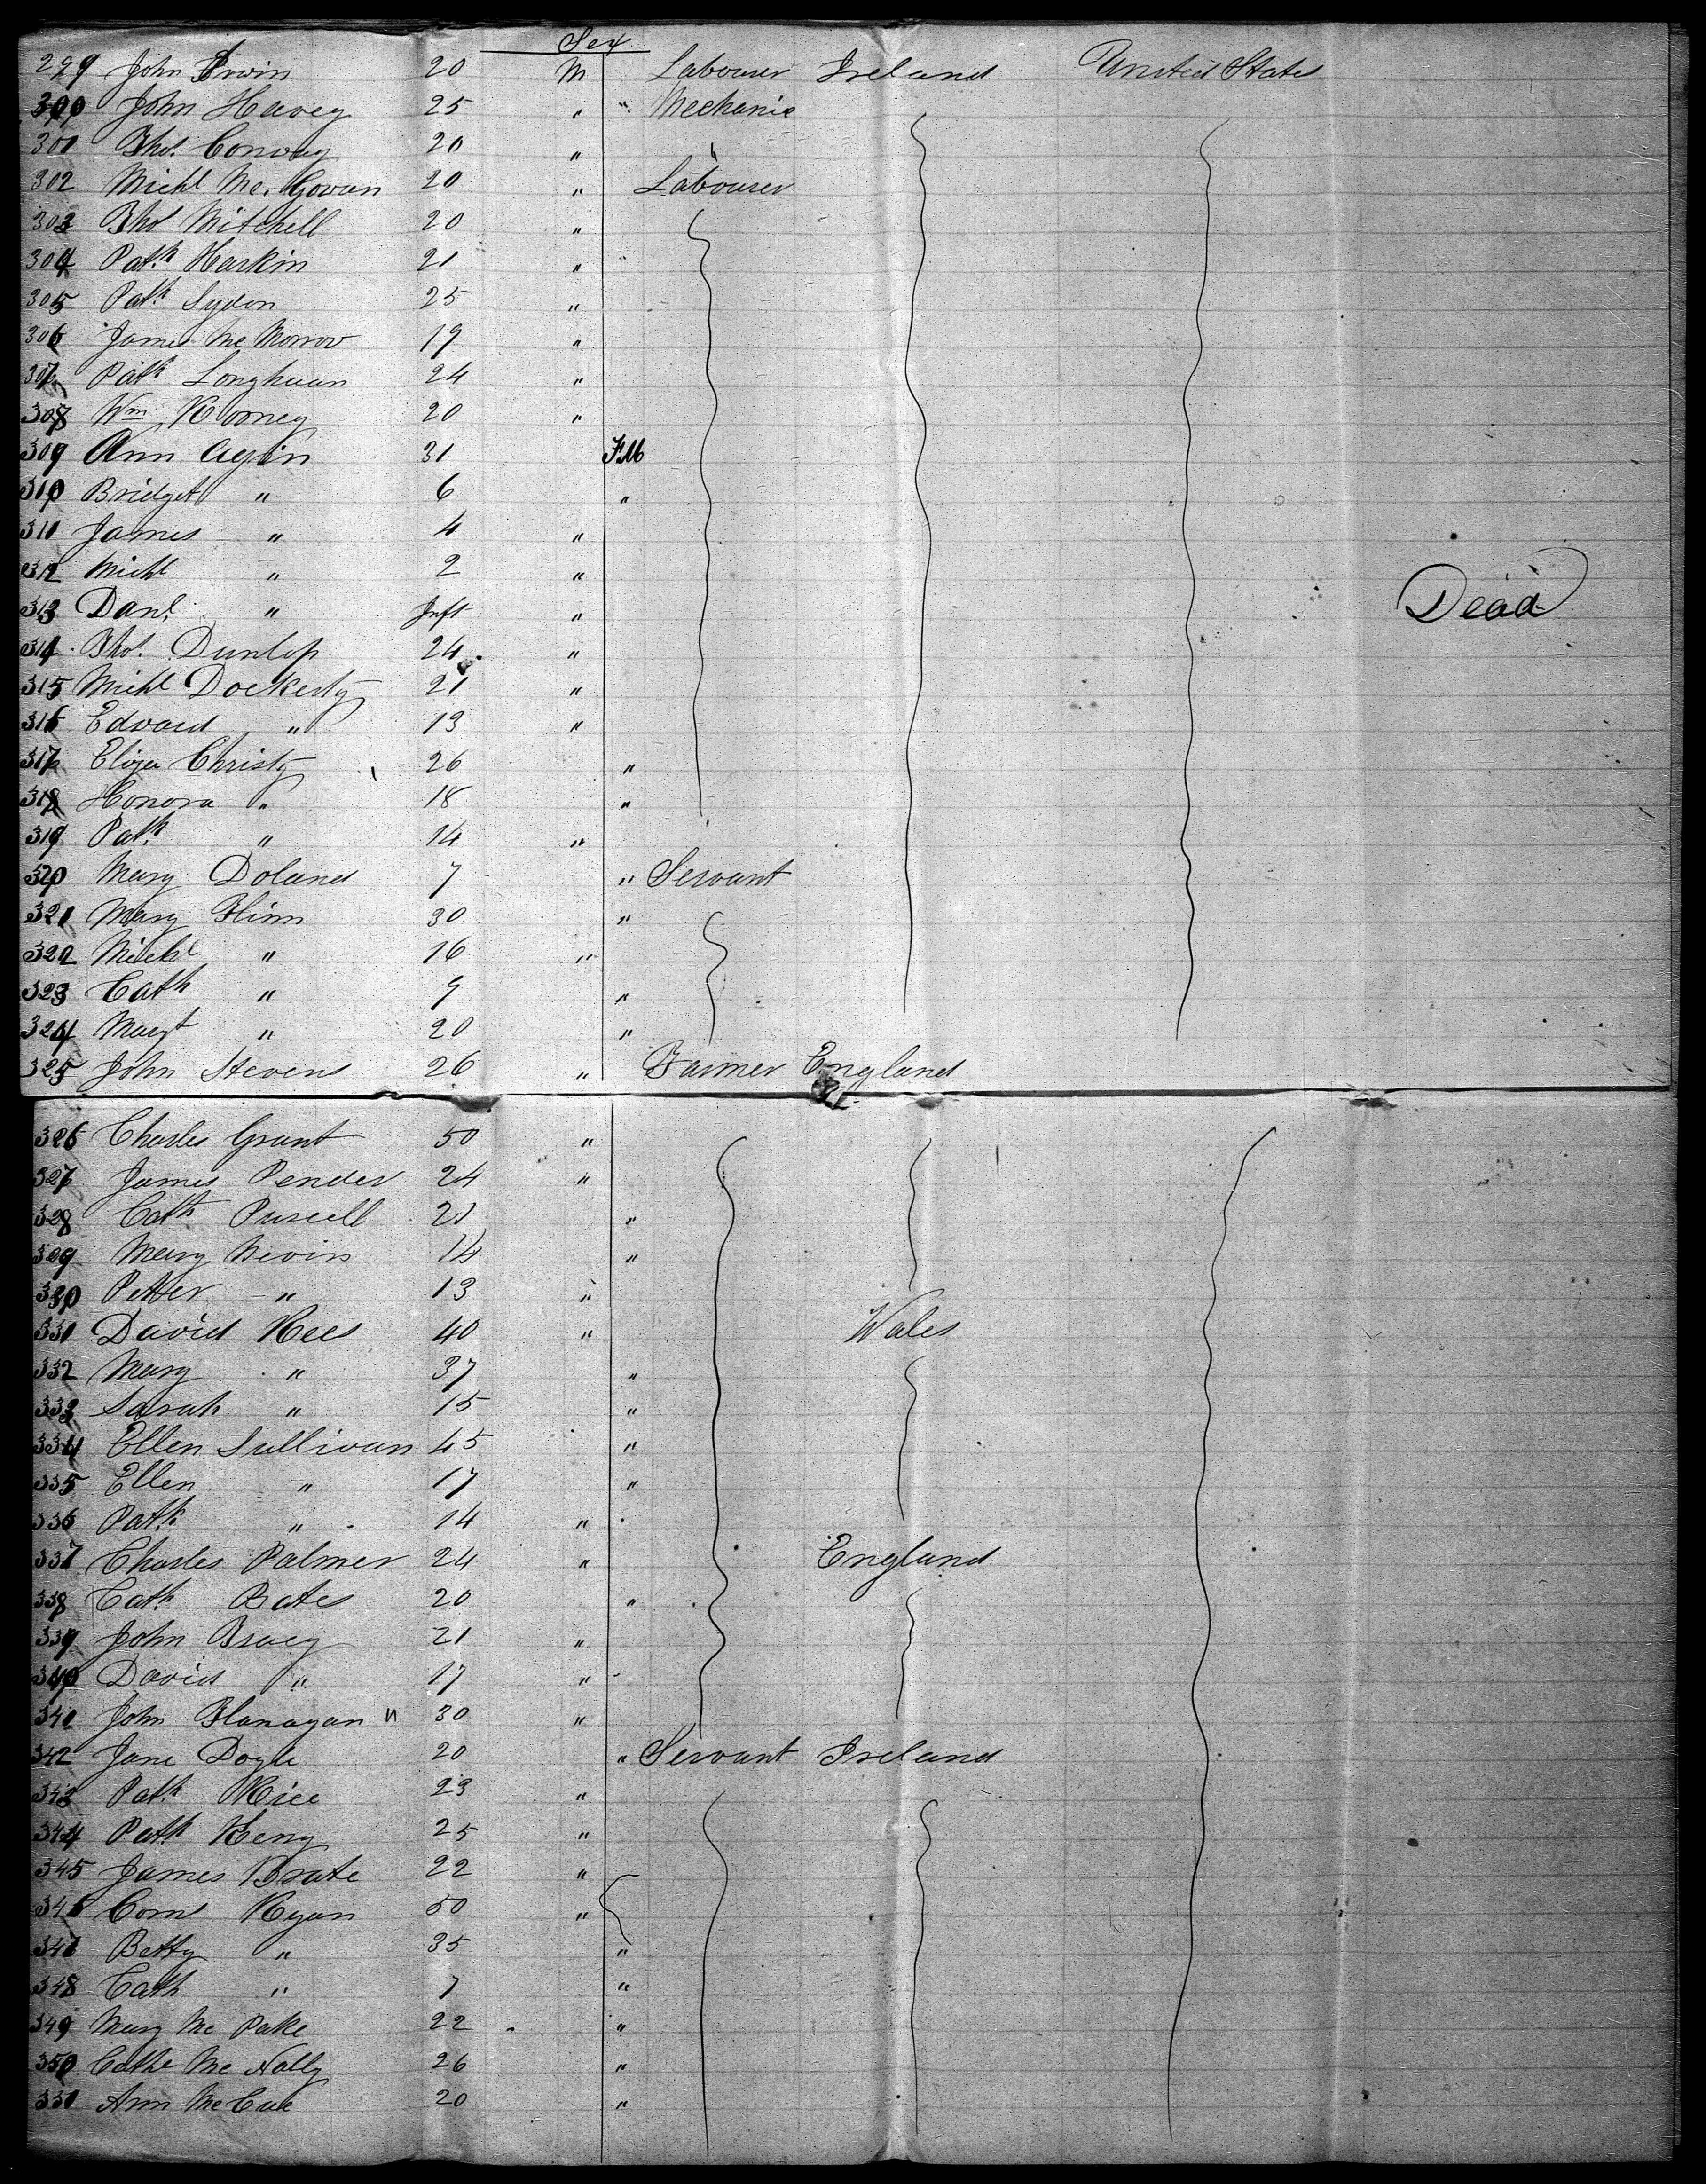 Sex
299 John Erwin 20 M Labourer Ireland United States
300 John Havey 25 " " Mechanic
301 Thos. Conway 20 "
302 Michl Mc. Gowan 20 " Labourer
303 Thos Mitchell 20 "
304 Patk Harkin 21 "
305 Patk Lydon 25 "
306 James Mc Morrow 19 "
307 Patk Longhuan 24 "
308 Wm Rooney 20 "
309 Ann Agin 31 FM
310 Bridget " 6 "
311 James " 4 "
312 Michl " 2 "
313 Danl. " Inft " Dead
314 Thos. Dunlop 24 "
315 Michl Dockerty 21 "
316 Edward " 13 "
317 Eliza Christy 26 "
318 Honora " 18 "
319 Patk " 14 "
320 Mary Doland 7 " Servant
321 Mary Flinn 30 "
322 Michl " 16 "
323 Cath " 9 "
324 Margt " 20 "
325 John Stevens 26 " Farmer England
326 Charles Grant 50 "
327 James Pender 24 "
328 Cath Purcell 21 "
329 Mary Nevin 14 "
330 Petter " 13 "
331 David Rees 40 " Wales
332 Mary " 37 "
333 Sarah " 15 "
334 Ellen Sullivan 45 "
335 Ellen " 17 "
336 Patk " 14 "
337 Charles Palmer 24 " England
338 Cath. Bates 20 "
339 John Bracy 21 "
340 David " 17 "
341 John Flanagan " 30 "
342 Jane Doyle 20 " Servant Ireland
343 Patk Rice 23 "
344 Patk Keny 25 "
345 James Brate 22 "
346 Corns Ryan 50 "
347 Betty " 35 "
348 Cath " 7 "
349 Mary Mc Pake 22 "
350 Cathe Mc Nally 26 "
351 Ann Mc Cue 20 "